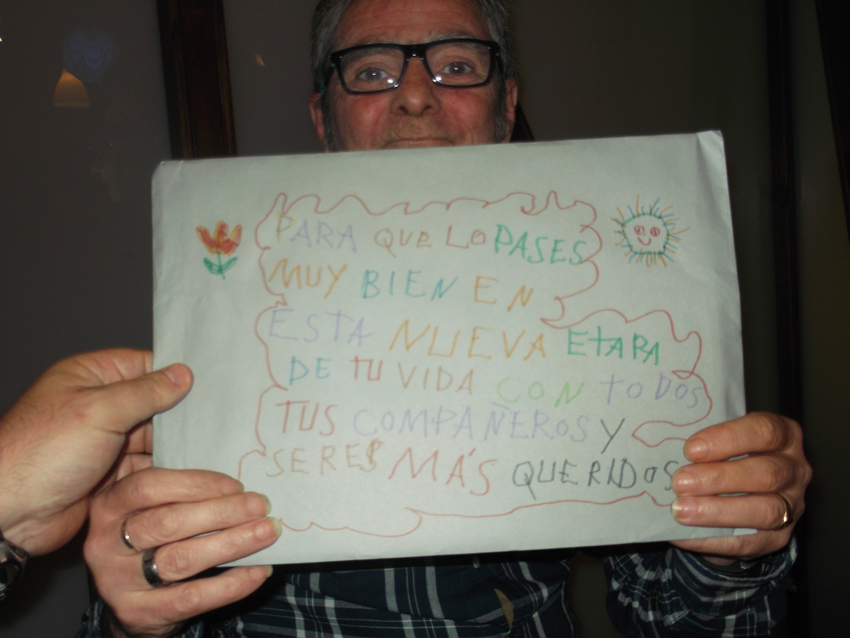 PARA QUE LO PASES
MUY BIEN EN
ESTA NUEVA ETAPA
DE TU VIDA CON TODOS
TUS COMPAÑEROS Y
SERES MÁS QUERIDOS